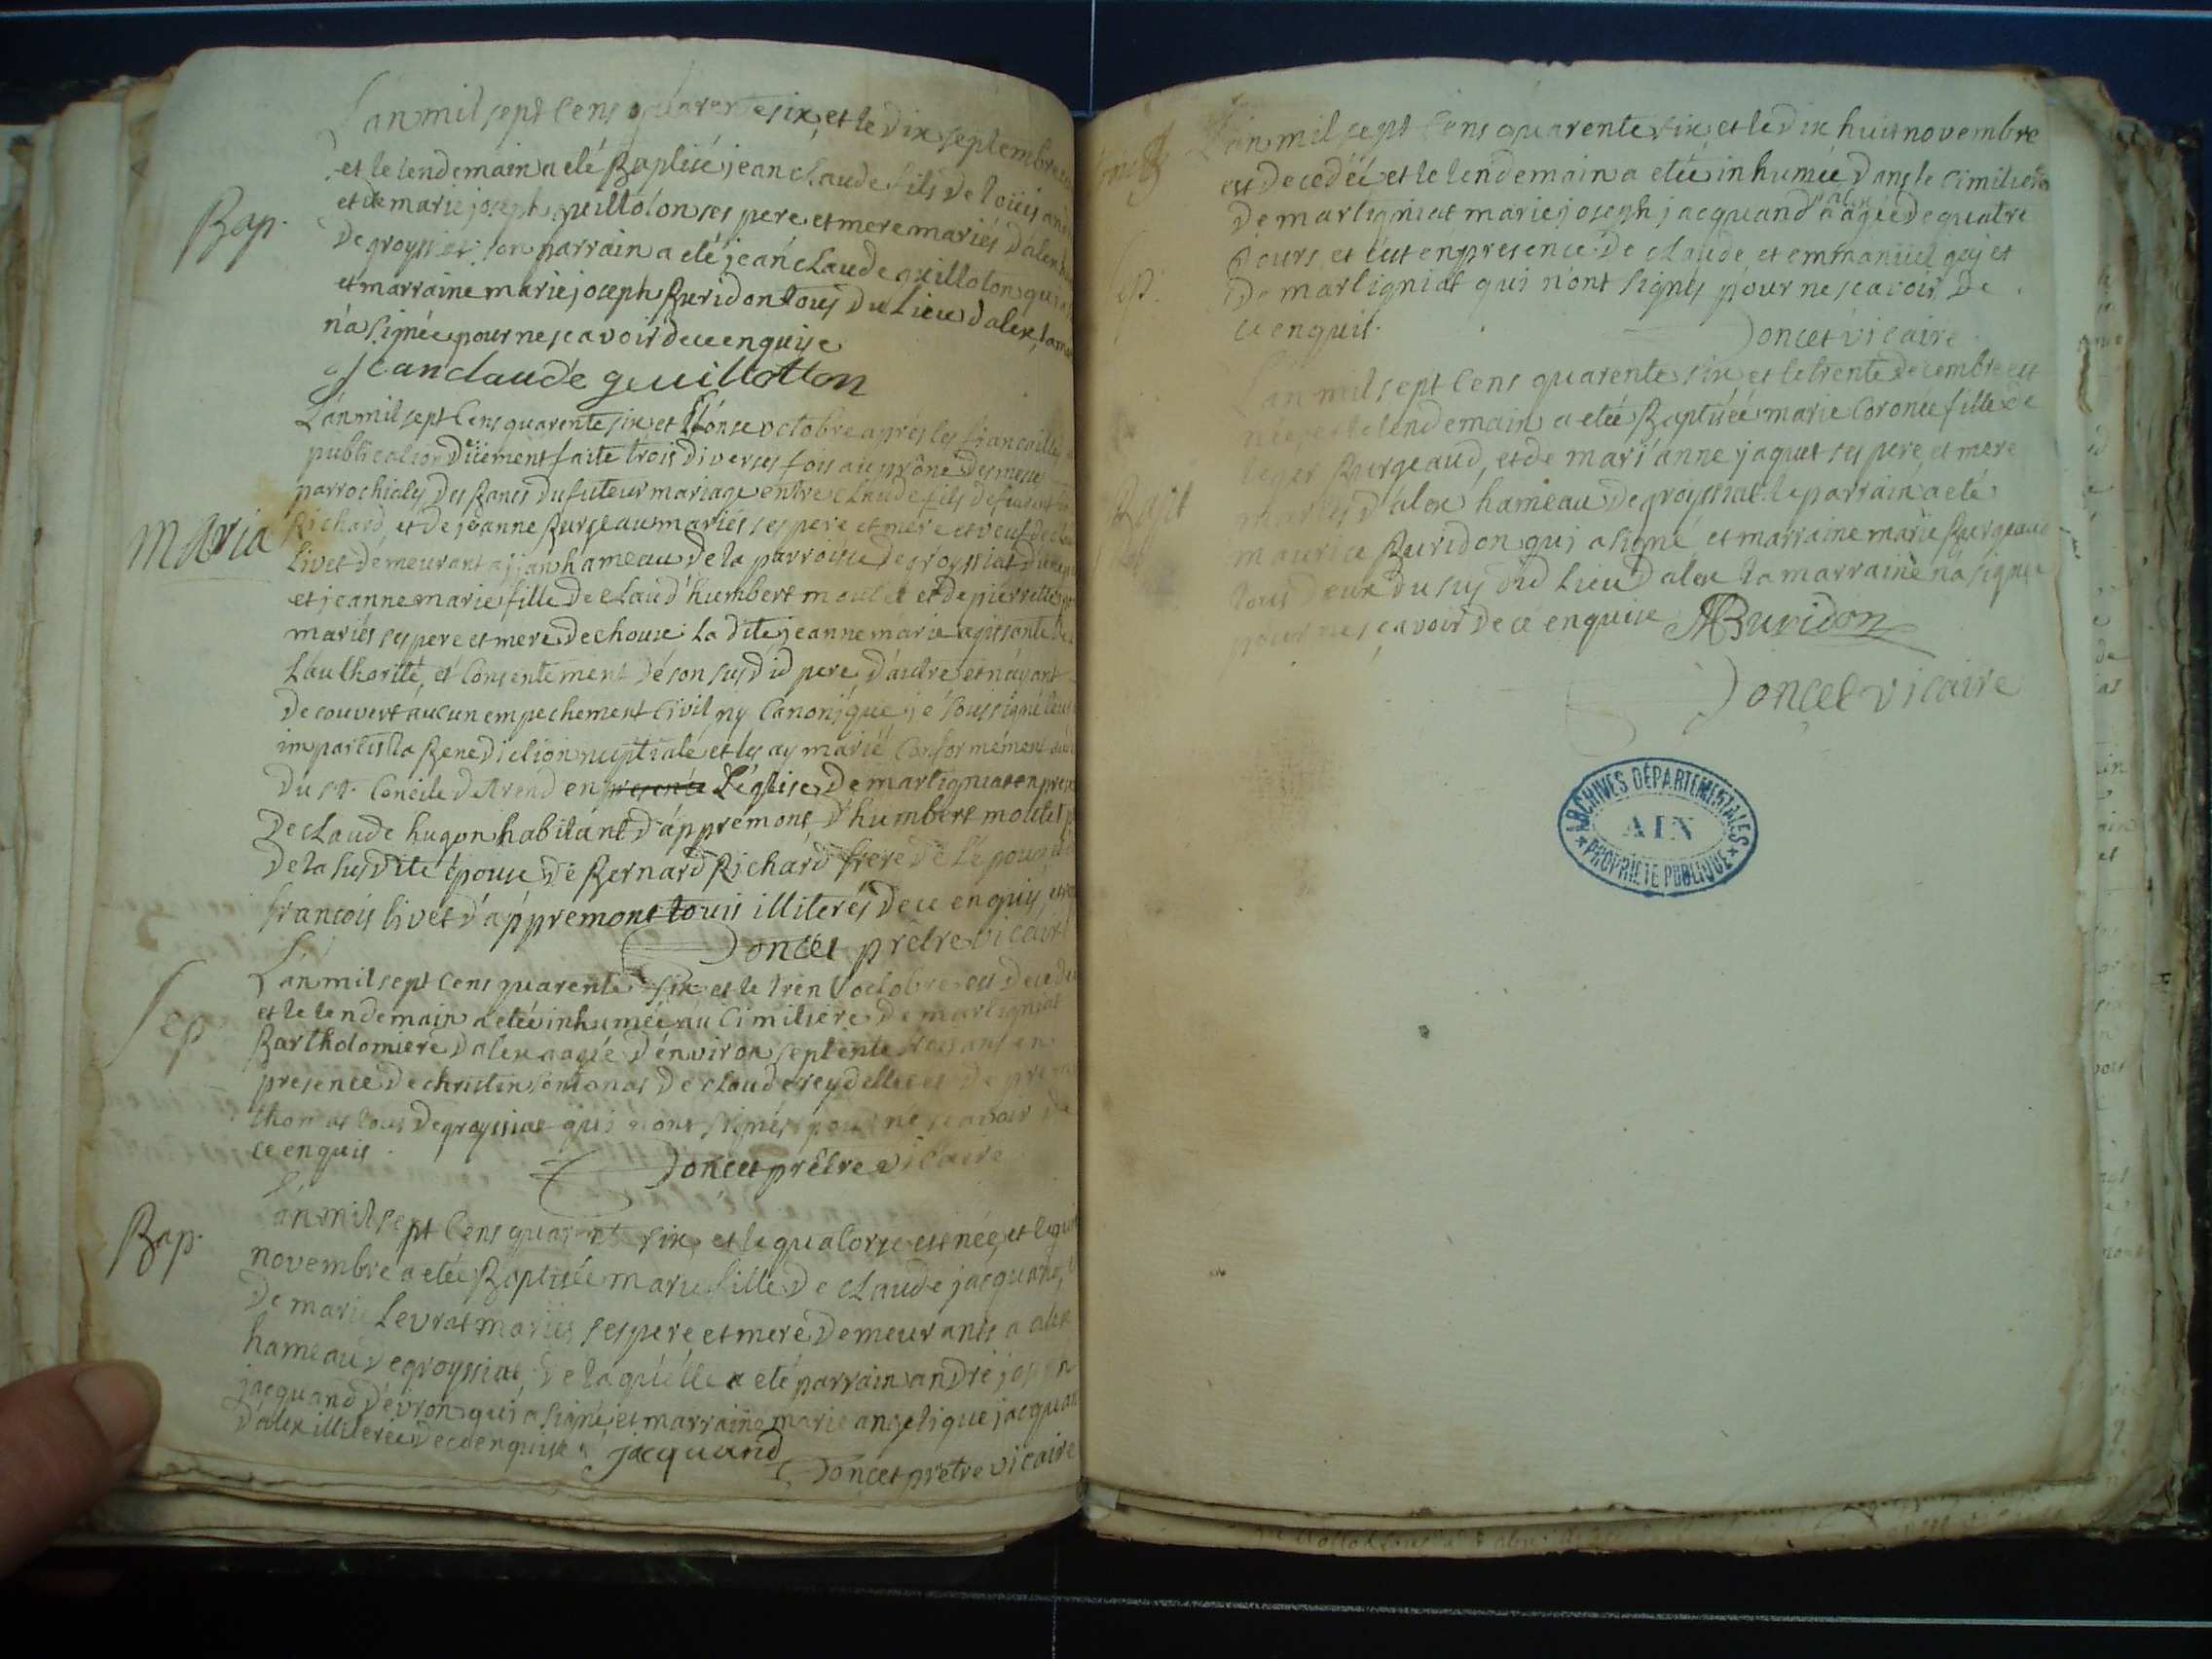 L'an mil sept cens quarante six, et le dix septembre
et le lendemain a eté Baptisé jean claude fils de loüis
Bap.
et de marie joseph guilloton ses pere et mere mariés d'alex
de groyssiat son parrain a eté jean claude guilloton qui a
et marraine marie joseph Buridon tous du lieu d'alex, la
n'a signée pour ne scavoir de ce enquise
jean claude guillotton
L'an mil sept cens quarente six et l'onse octobre aprés les fiancailles
publication düement faite trois diverses fois au prône des messe
parrochiales des Bancs du futeur mariage entre claude fils de
Maria
Richard, et de jeanne Burgeau mariés ses pere et mere et veuf de
livet demeurant a hameau de la parroisse de groyssiat
et jeanne marie fille de claud'humbert moulet et de pierrette
mariés ses pere et mere de chouse la dite jeanne marie agissante de
l'authorité, et consentement de son susdid pere, d'autre et n'ayant
decouvert aucun empechement civil ny canonique je soussigné leur
impartis la Benediction nuptiale et les ay marié conformément
du st. concile de trend en presence l'église de martigniat en
de claude hugon habitant d'appremont, d'humbert moulet
de la susdite epouse, de Bernard Richard frere de l'epoux
francois livet d'appremont tous illiterés de ce enquis
Doncet prêtre vicaire
L'an mil sept cens quarente six et le octobre est
Sep
et le lendemain a etée inhumée au cimitiere de martigniat
Bartholomiere d'alex aagée d'environ septente trois ans en
presence de christin de claude reydellet et de
thomas tous de groyssiat qui n'ont signés pour ne scavoir de
ce enquis.
Doncet prêtre vicaire
L'an mil sept cens quarente six, et le quatorse est née, et le
Bap.
novembre a etée Baptisée marie fille de claude jacquand,
de marie levrat mariés ses pere et mere demeurants a alex
hameau de groyssiat, de laquelle a eté parrain andré joseph
jacquand d'evron qui a signé, et marraine marie angelique jacquand
d'alex illiterée de ce enquise
jacquand
Doncet prêtre vicaire
L'an mil sept cens quarente six et le dix huit novembre
est decedée et le lendemain a etée inhumée dans le cimitiere
de martigniat marie joseph jacquand d'alex aagée de quatre
jours et c'ut en presence de claude et emmanüel guyet
Sep.
de martigniat qui n'ont signés pour ne scavoir de
ce enquis.
Doncet vicaire
L'an mil sept cens quarente six et le trente decembre est
née, et le lendemain a etée Baptisée marie fille de
leger Burgeaud, et de mari'anne jaquet ses pere et mere
mariés d'alex hameau de groyssiat le parrain a eté
maurice Buridon qui a signé et marraine marie Burgeaud
tous deux du susdid lieu d'alex la marraine n'a signée
pour ne scavoir de ce enquise
MBuridon
Doncet vicaire
ARCHIVES DÉPARTEMENTALES
AIN
PROPRIÉTÉ PUBLIQUE